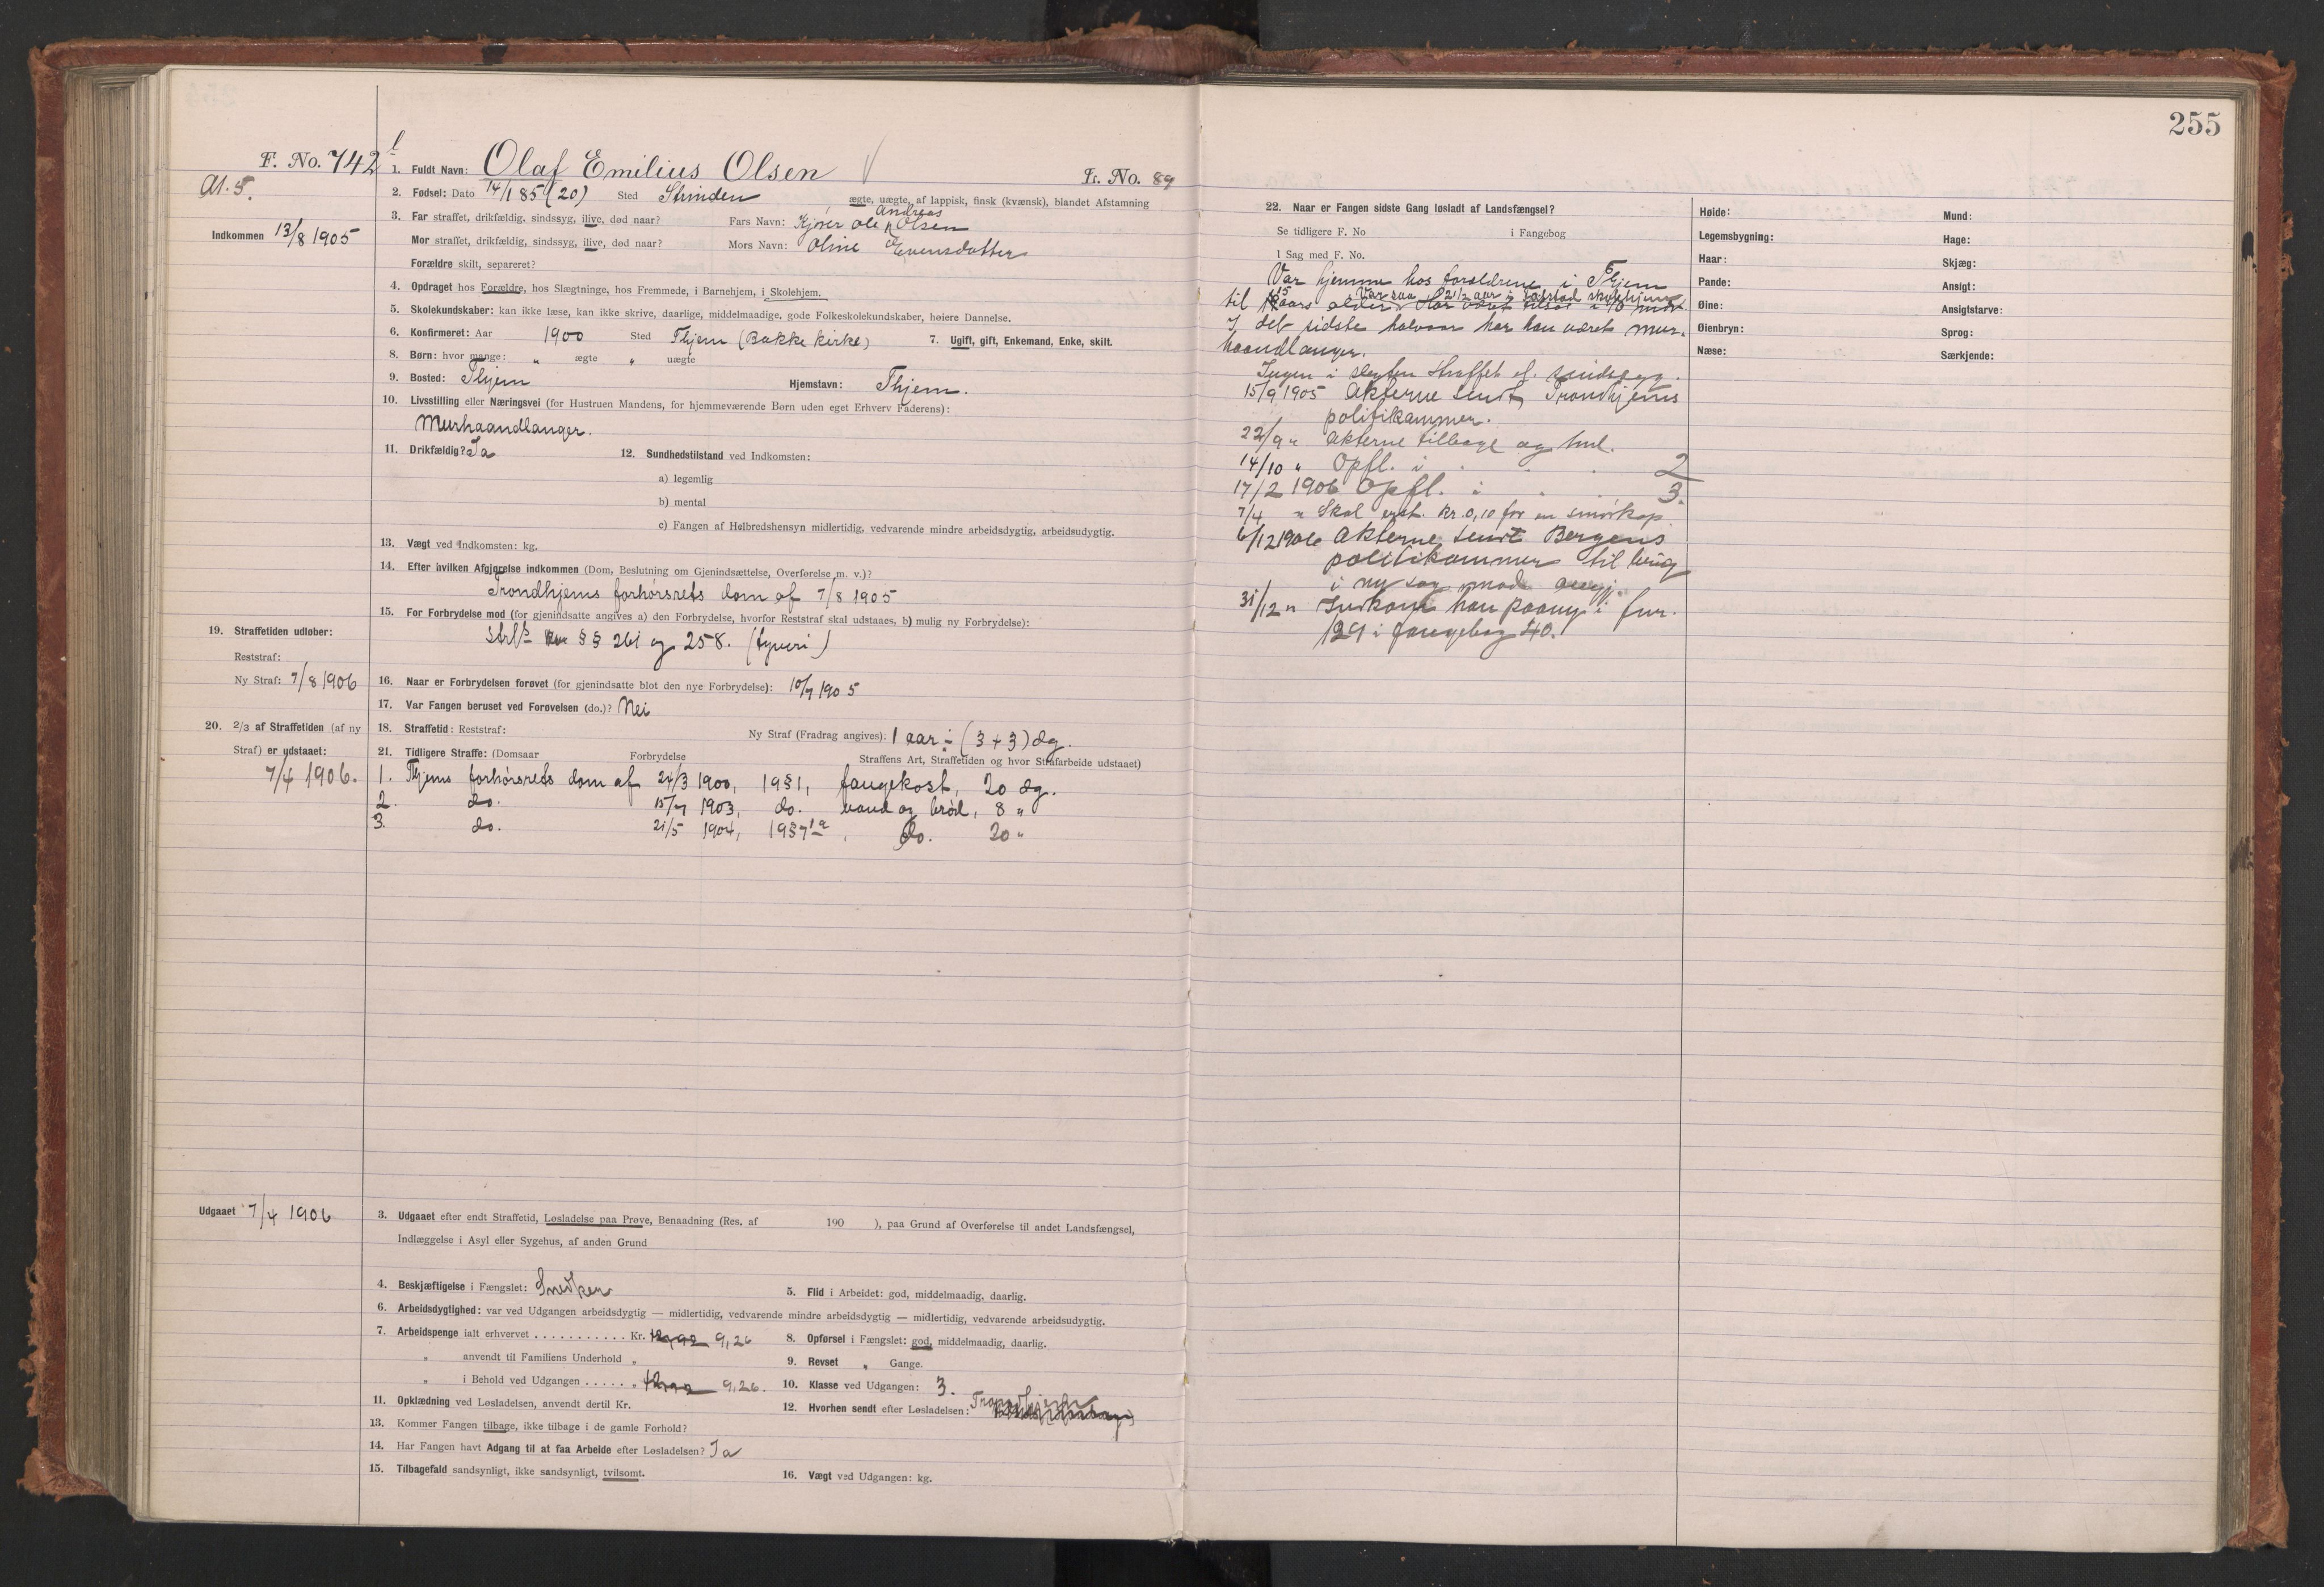 255
F. No. 742
Al. 5.
Indkommen 13/8 1905
1. Fuldt Navn: Olaf Emilius Olsen
Fr. No. 89
2. Fødsel: Dato 14/1 85 (20) Sted Strinden
ægte, uægte, af lappisk, finsk (kvænsk), blandet Afstamning
3. Far straffet, drikfældig, sindssyg, ilive, død naar? Fars Navn: Kjører Ole Andreas Olsen
Mor straffet, drikfældig, sindssyg, ilive, død naar? Mors Navn: Oline Evensdatter
Forældre skilt, separeret?
4. Opdraget hos Forældre, hos Slægtninge, hos Fremmede, i Barnehjem, i Skolehjem.
5. Skolekundskaber: kan ikke læse, kan ikke skrive, daarlige, middelmaadige, gode Folkeskolekundskaber, høiere Dannelse.
6. Konfirmeret: Aar 1900 Sted Thjem (Bakke kirke) 7. Ugift, gift, Enkemand, Enke, skilt.
8. Børn: hvor mange: „ ægte „ uægte
9. Bosted: Thjem Hjemstavn: Thjem.
10. Livsstilling eller Næringsvei (for Hustruen Mandens, for hjemmeværende Børn uden eget Erhverv Faderens):
Murhaandlanger.
11. Drikfældig? Ja 12. Sundhedstilstand ved Indkomsten:
a) legemlig
b) mental
c) Fangen af Helbredshensyn midlertidig, vedvarende mindre arbeidsdygtig, arbeidsudygtig.
13. Vægt ved Indkomsten: kg.
14. Efter hvilken Afgjørelse indkommen (Dom, Beslutning om Gjenindsættelse, Overførelse m. v.)?
Trondhjems forhørsrets dom af 7/8 1905
15. For Forbrydelse mod (for gjenindsatte angives a) den Forbrydelse, hvorfor Reststraf skal udstaaes, b) mulig ny Forbrydelse):
§§ 261 og 258. (tyveri)
19. Straffetiden udløber:
Reststraf:
Ny Straf: 7/8 1906
16. Naar er Forbrydelsen forøvet (for gjenindsatte blot den nye Forbrydelse): 10/7 1905
17. Var Fangen beruset ved Forøvelsen (do.)? Nei
20. 2/3 af Straffetiden (af ny
Straf) er udstaaet:
7/4 1906.
18. Straffetid: Reststraf: Ny Straf (Fradrag angives): 1 aar ÷ (3 + 3) dg.
21. Tidligere Straffe: (Domsaar Forbrydelse Straffens Art, Straffetiden og hvor Strafarbeide udstaaet)
1. Thjems forhørsrets dom af 24/3 1900, 19§1, fangekost, 20 dg.
2. do. 15/7 1903, do. vand og brød, 8 „
3. do. 21/5 1904, 19§7 1a, do. 20 „
Udgaaet 7/4 1906
3. Udgaaet efter endt Straffetid, Løsladelse paa Prøve, Benaadning (Res. af 190 ), paa Grund af Overførelse til andet Landsfængsel,
Indlæggelse i Asyl eller Sygehus, af anden Grund
4. Beskjæftigelse i Fængslet: Snedker 5. Flid i Arbeidet: god, middelmaadig, daarlig.
6. Arbeidsdygtighed: var ved Udgangen arbeidsdygtig — midlertidig, vedvarende mindre arbeidsdygtig — midlertidig, vedvarende arbeidsudygtig.
7. Arbeidspenge ialt erhvervet ........... Kr. 9,26 8. Opførsel i Fængslet: god, middelmaadig, daarlig.
„ anvendt til Familiens Underhold „ 9. Revset „ Gange.
„ i Behold ved Udgangen ..... „ 9,26. 10. Klasse ved Udgangen: 3.
11. Opklædning ved Løsladelsen, anvendt dertil Kr. 12. Hvorhen sendt efter Løsladelsen: Trondhjem
13. Kommer Fangen tilbage, ikke tilbage i de gamle Forhold?
14. Har Fangen havt Adgang til at faa Arbeide efter Løsladelsen? Ja
15. Tilbagefald sandsynligt, ikke sandsynligt, tvilsomt. 16. Vægt ved Udgangen: kg.
22. Naar er Fangen sidste Gang løsladt af Landsfængsel?
Se tidligere F. No i Fangebog
I Sag med F. No.
Var hjemme hos forældrene i Thjem
til 15 aars alder. Var saa 2 1/2 aar i skolehjem.
I det sidste halvaar har han været mur-
haandlanger.
Ingen i slegten straffet el. sindssyg.
15/9 1905 Akterne sendt Trondhjems
politikammer.
22/9 „ Akterne tilbage og hml.
14/10 „ Opfl. i . . . 2
17/2 1906 Opfl. i . . 3.
7/4 „ Skal erst. kr. 0,10 for en smörkop.
6/12 1906 Akterne sendt Bergens
politikammer til brug
i ny sag mod angj.
31/12 „ Indkom han paany i fnr.
129 i fangebog 40.
Høide:
Legemsbygning:
Haar:
Pande:
Øine:
Øienbryn:
Næse:
Mund:
Hage:
Skjæg:
Ansigt:
Ansigtstarve:
Sprog:
Særkjende: